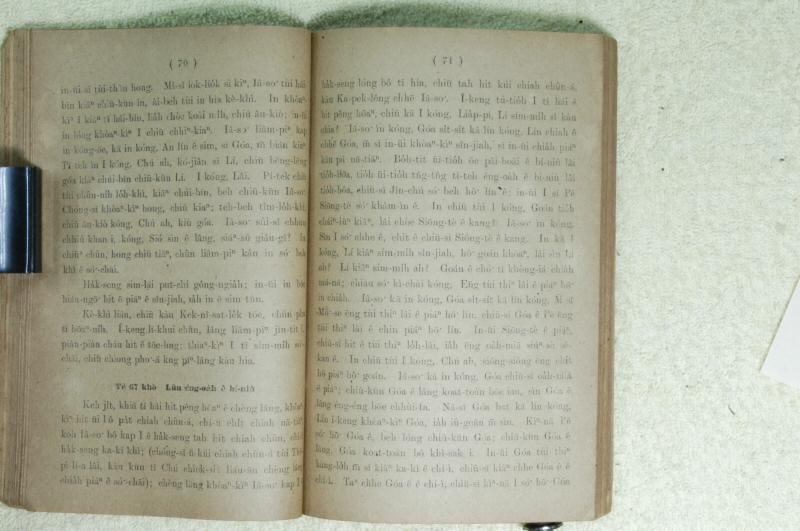 ( 70 )
in-ūi sī tùi-thîn hong. Mî-sî iok-lio̍k sì kiⁿ, Iâ-so͘ tùi hái-
bīn kiâⁿ chiū-kūn in, ài-beh tùi in hia kè-khì. In khòaⁿ-
kìⁿ I kiâⁿ tī hái-bīn, lia̍h chòe koài mi̍h, chiū âu-kiò; in-ūi
in lóng khòaⁿ-kìⁿ I chiū chhiⁿ-kiaⁿ. Iâ-so͘ liâm-piⁿ kap
in kóng-ōe, kā in kóng, An lín ê sim, sī Góa, m̄ bián kiaⁿ
Pí-tek ìn I kóng, Chú ah, kó-jiân sī Lí, chiū bēng-lēng
góa kiâⁿ chúi-bīn chiū-kūn Lí. I kóng, Lâi. Pí-tek chiū
tùi chûn-nih lo̍h-khì, kiâⁿ chúi-bīn, beh chiū-kūn Iâ-so͘
Chóng-sī khòaⁿ-kìⁿ hong, chiū kiaⁿ; teh-beh tîm-lo̍h-khì,
chiū âu-kiò kóng, Chú ah, kiù góa. Iâ-so͘ sûi-sî chhun
chhiú khan i, kóng, Sió sìn ê lâng, siáⁿ-sū giâu-gî? In
chiūⁿ chûn, hong chiū tiāⁿ, chûn liâm-piⁿ kàu in só͘ beh
khì ê só͘-chāi.
Ha̍k-seng sim-lāi put-chí gông-ngia̍h; in-ūi in bōe
hiáu-ngō͘ hit ê piáⁿ ê sîn-jiah, sah in ê sim tūn.
Kè-khì liáu, chiū kàu Kek-nî-sat-lek tóe, chûn pha
tī hōaⁿ-nih. Í-keng lī-khui chûn, lâng liâm-piⁿ jīn-tit I,
piàn-piàn cháu hit ê tōe-hng; thiaⁿ-kìⁿ I tī sím-mi̍h só͘-
chāi, chiū chiong pho͘-á kng pīⁿ-lâng kàu hia.
Tē 67 khò Lūn éng-oa̍h ê bí-niû
Keh ji̍t, khiā tī hái hit pêng hōaⁿ ê chèng lâng, khòaⁿ-
kìⁿ hit ūi bô pa̍t chiah chûn-á, chí-ū chi̍t chiah nā-tiāⁿ,
koh Iâ-so͘ bô kap I ê ha̍k-seng tah hit chiah chûn, chí-ū
ha̍k-seng ka-kī khì; (chóng-sī ū kúi chiah chûn-á tùi Thî-
pí-lí-a lâi, kàu kūn tī Chú chiok-siā liáu-āu chèng lâng
chia̍h piáⁿ ê só͘-chāi); chèng lâng khòaⁿ-kìⁿ Iâ-so͘ kap I ê
( 71 )
ha̍k-seng lóng bô tī hia, chiū tah hit kúi chiah chûn-á,
kàu Ka-pek-lông chhē Iâ-so͘. Í-keng tú-tio̍h I tī hái ê
hit pêng hōaⁿ, chiū kā I kóng, Lia̍p-pí, Lí sím-mi̍h sî kàu
chia? Iâ-so͘ ìn kóng, Góa si̍t-si̍t kā lín kóng, Lín chiah ê
chhē Góa, m̄ sī in-ūi khòaⁿ-kìⁿ sîn-jiah, sī in-ūi chia̍h piáⁿ
kàu pá nā-tiāⁿ. Bo̍h-tit ūi-tio̍h ōe pāi-hoāi ê bí-niû lâi
thò-bôa, tio̍h ūi-tio̍h tn̂g-tn̂g tì-teh éng-oa̍h ê bí-niû lâi
tio̍h-bôa, chiū-sī Jîn-chú só͘ beh hō͘ lín ê; in-ūi I sī Pē
Siōng-tè só͘ khàm-ìn ê. In chiū tùi I kóng, Goán tio̍h
cháiⁿ-iūⁿ kiâⁿ, lâi chòe Siōng-tè ê kang? Iâ-so͘ ìn kóng,
Sìn I só͘ chhe ê, chit ê chiū-sī Siōng-tè ê kang. In kā I
kóng, Lí kiâⁿ sím-mi̍h sîn-jiah, hō͘ goán khòaⁿ, lâi sìn Lí
ah? Lí kiâⁿ sím-mi̍h ah? Goán ê chó͘ tī khòng-iá chia̍h
má-ná; chiàu só͘ kì-chài kóng, Eng tùi thiⁿ lâi ê piáⁿ hō͘
in chia̍h. Iâ-so͘ kā in kóng, Góa si̍t-si̍t kā lín kóng, M̄ sī
Mô͘-se eng tùi thiⁿ lâi ê piáⁿ hō͘ lín, chiū-sī Góa ê Pē eng
tùi thiⁿ lâi ê chin piáⁿ hō͘ lín. In-ūi Siōng-tè ê piáⁿ,
chiū-sī hit ê tùi thiⁿ lo̍h-lâi, iah eng oa̍h-miā siúⁿ-sù sè-
kan ê. In chiū tùi I kóng, Chú ah, siông-siông eng chit
hō piáⁿ hō͘ goán. Iâ-so͘ kā in kóng, Góa chiū-sī oa̍h-miā
ê piáⁿ; chiū-kūn Góa ê lâng koat-toàn bōe iau, sìn Góa ê
lâng éng-éng bōe chhùi-ta. Nā-sī Góa bat kā lín kóng,
Lín í-keng khòaⁿ-kìⁿ Góa, iah iû-goân m̄ sìn. Kìⁿ-nā Pē
só͘ hō͘ Góa ê, beh lóng chiū-kūn Góa; chiū-kūn Góa ê
lâng, Góa koat-toàn bô khì-sak i. In-ūi Góa tùi thiⁿ
kàng-lo̍h m̄ sī kiâⁿ ka-kī ê chí-ì, chiū-sī kiâⁿ chhe Góa ê ê
chí-ì. Taⁿ chhe Góa ê ê chí-ì, chiū-sī kìⁿ-nā I só͘ hō͘ Góa